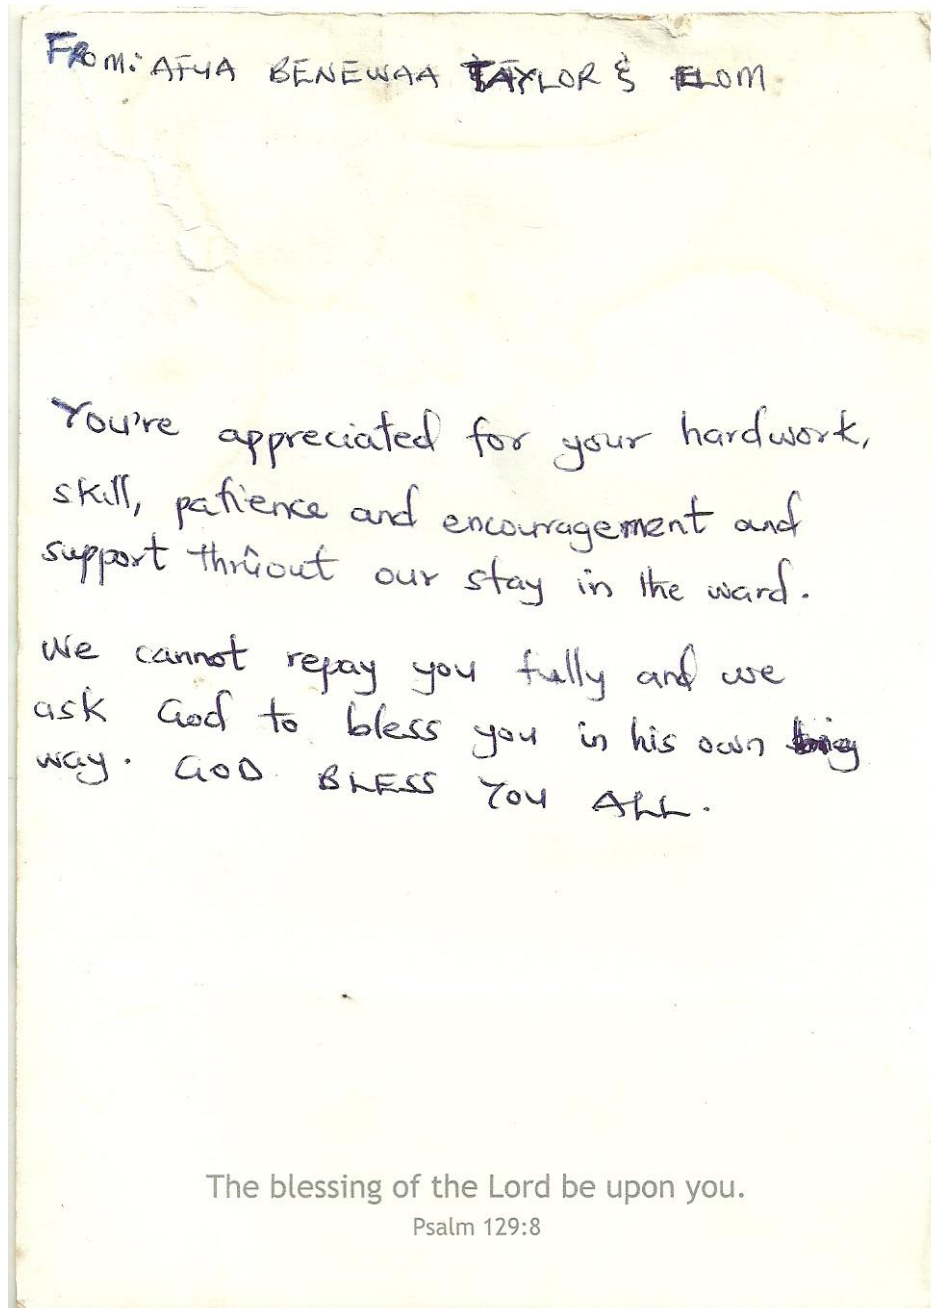 FROM: AFUA BENEWAA TAYLOR & ELOM.
You're appreciated for your hardwork,
skill, patience and encouragement and
support thrûout our stay in the ward.
We cannot repay you fully and we
ask God to bless you in his own big
way. GOD BLESS YOU ALL.
The blessing of the Lord be upon you.
Psalm 129:8